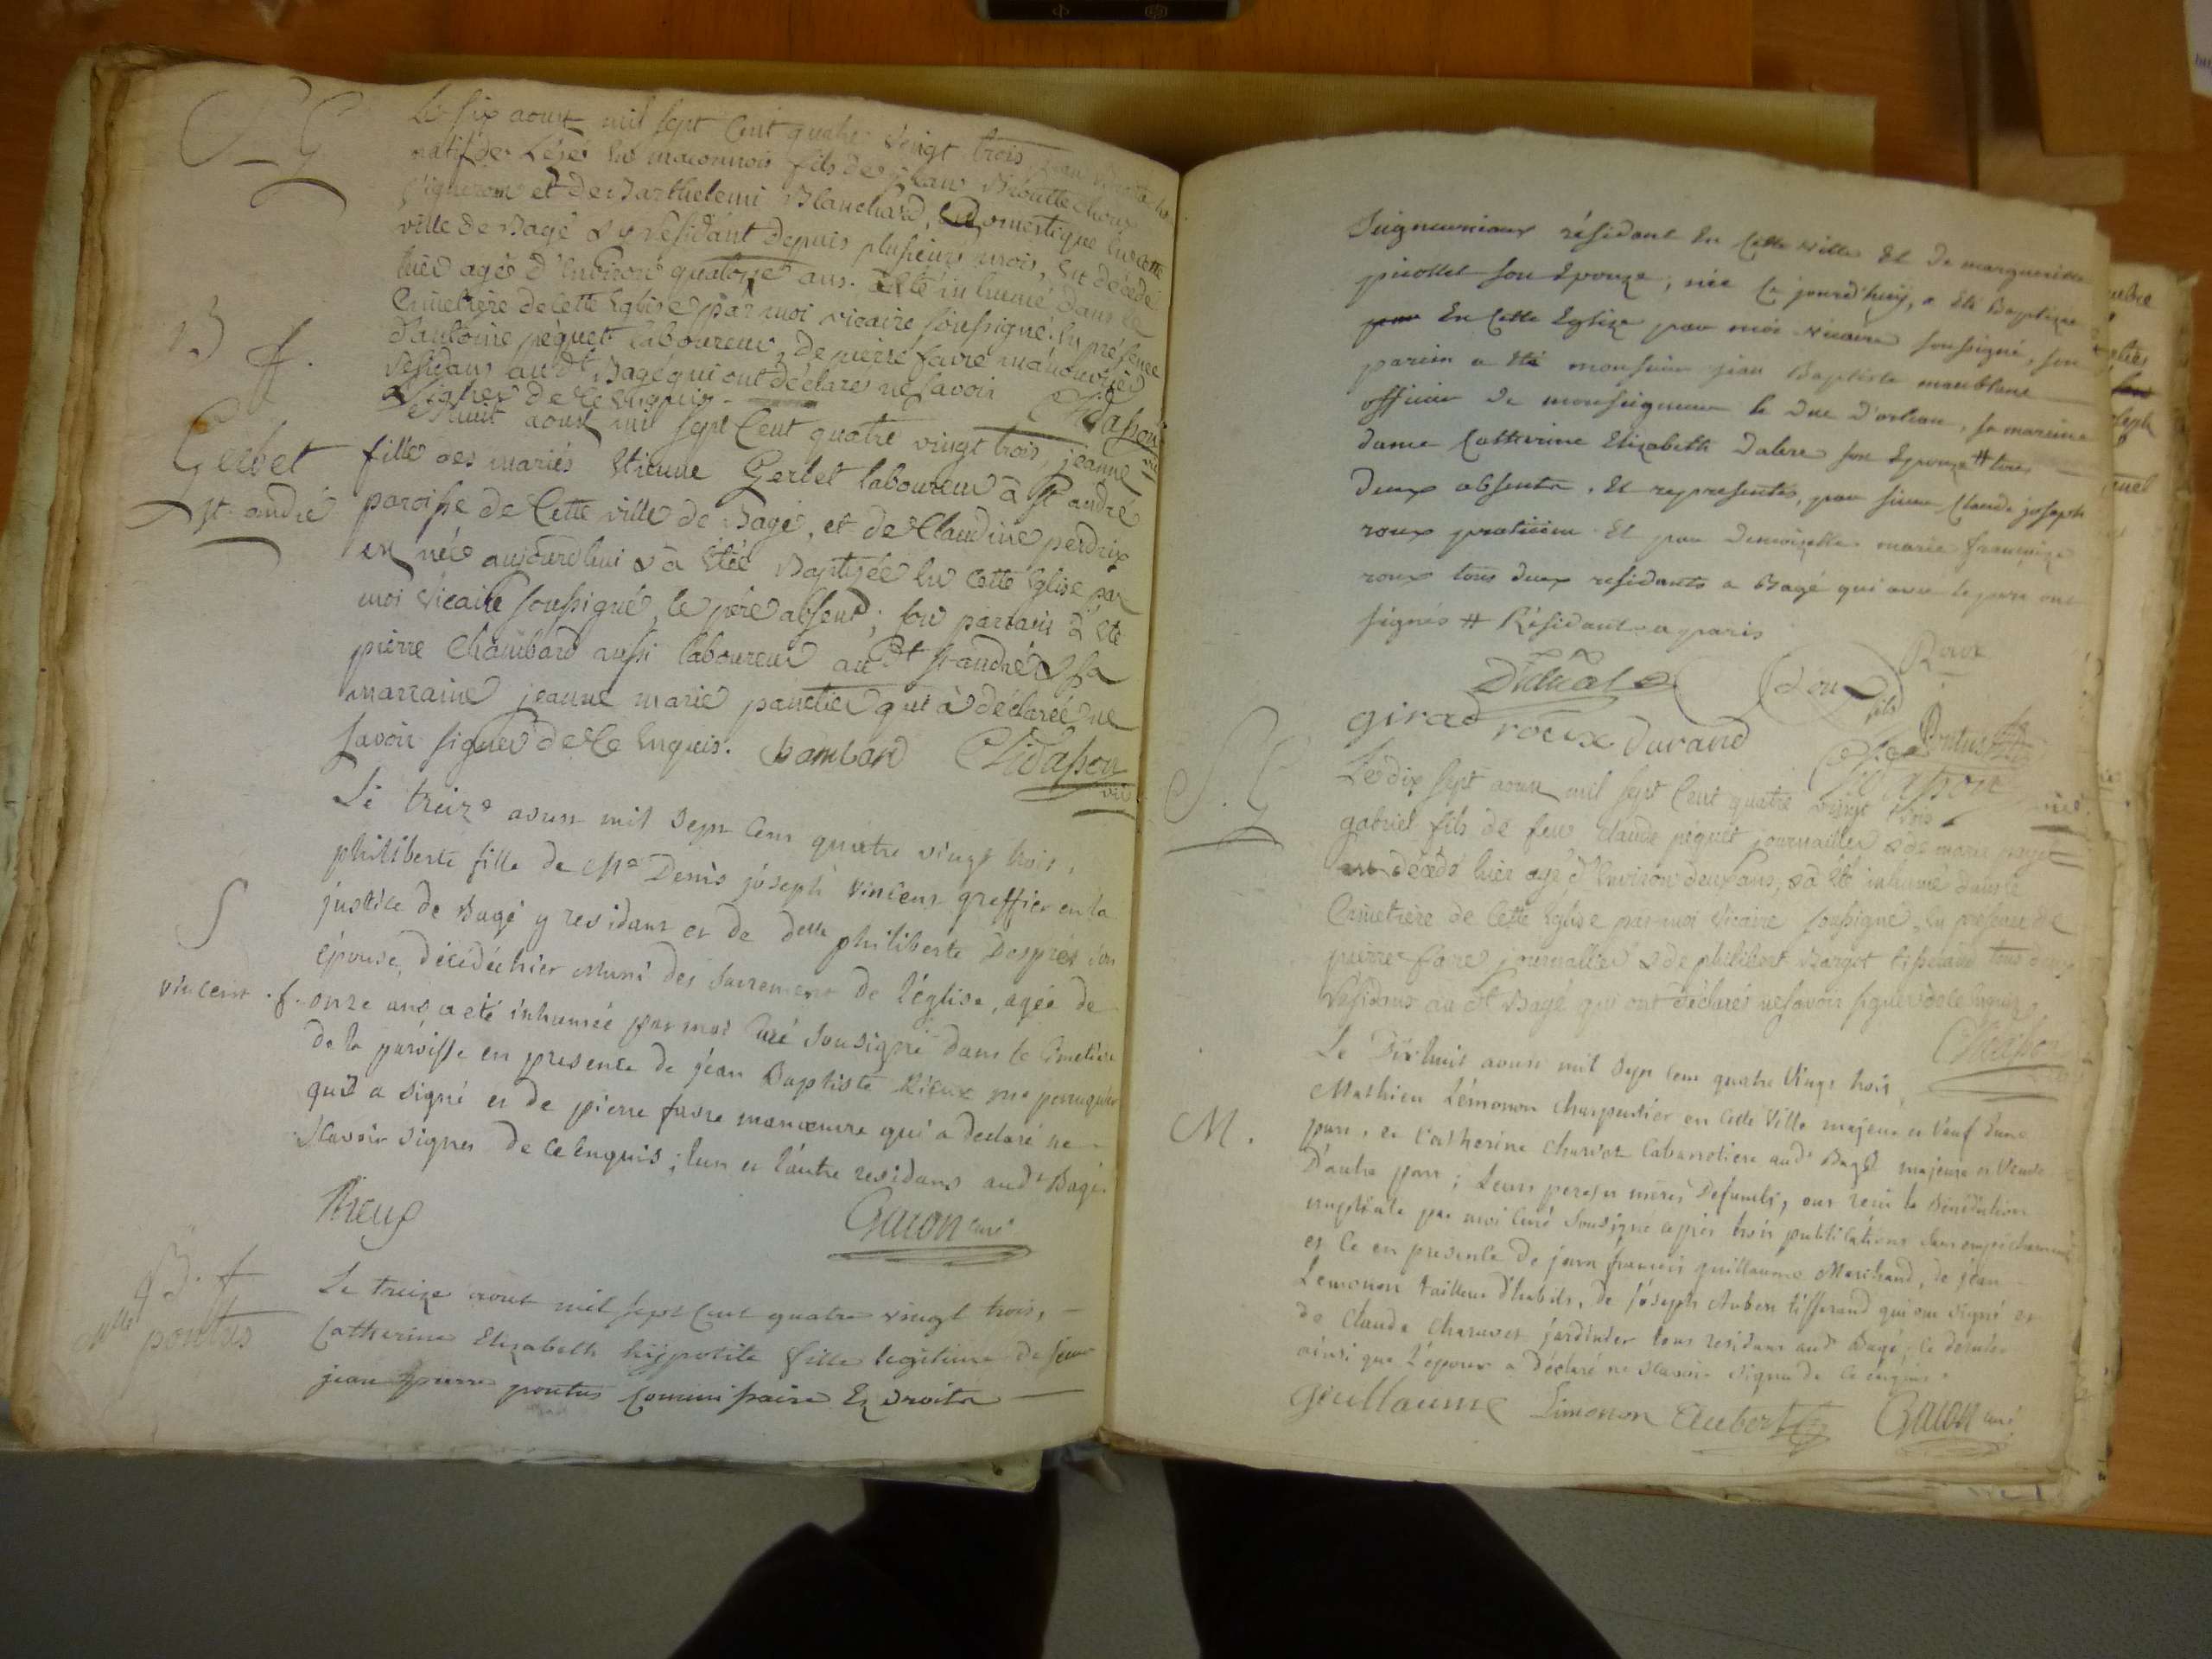 S G
Le six aoust mil sept Cent quatre vingt trois jean
natif de Lésé en maconnois fils de jean Broutte choux
vigneron et de Barthelemi Blanchard, domestique en cette
ville de Bagé & y residant depuis plusieurs mois, est décédé
hier agé d'environ quatorze ans. a été inhumé dans le
Cimetière de cette Eglise par moi vicaire soussigné, en présence
d'antoine péquet laboureur, de pierre favre manouvrier
résidans audt Bagé qui ont déclarés ne savoir
signer de ce enquis. Chidasson
B f.
Gerbet
st. andré
Le huit aoust mil sept Cent quatre vingt trois, jeanne
fille des mariés Etienne Gerbet laboureur à st andré
paroisse de Cette ville de Bagé, et de Claudine perdrix
est née aujourdhui & a étée Baptisée en cette Eglise par
moi vicaire soussigné, le père absent; son parrain a été
pierre Chambard aussi laboureur audt st andré & sa
marraine jeanne marie panetier qui a déclarée ne
savoir signer de ce enquis. Chambard Chidasson
vic
S
vincent .f.
Le treize aoust mil sept cens quatre vingt trois,
philiberte fille de Me Denis joseph vincent greffier en la
justice de Bagé y residant et de delle philiberte Després son
épouse, décédée hier muni des sacrements de l'église, agée de
onze ans a été inhumée par moi curé sousigné dans le Cimetiere
de la paroisse en presence de jean Baptiste Rieux me perruquier
qui a signé et de pierre favre manoeuvre qui a declaré ne
scavoir signer de ce enquis; l'un et l'autre residans audt Bagé.
Rieux Gacon curé
B. f
Mlle pontus
Le treize aout mil sept Cent quatre vingt trois,
Catherine Elizabeth hyppolite fille legitime de sieur
jean pierre pontus Commissaire Es droits
Seigneuriaux résidant En Cette ville Et de margueritte
piollet son Epouze, née Ce jourd'huy, a Eté Baptizée
par En Cette Eglize par moi vicaire soussigné, son
parein a Eté monsieur jean Baptiste maublanc
officier de monseigneur le Duc D'orlean, sa mareine
dame Catherine Elizabeth Dalere son Epouze # tous
deux absents. Et representés, par sieur Claude joseph
roux praticien Et par Demoizelle marie françoize
roux tous deux residants a Bagé qui avec le pere ont
signés # Résidant a paris
Roux
girad roux durand Pontus
Chidasson
vic.
S. G
Le dix sept aoust mil sept Cent quatre vingt trois
gabriel fils de feu claude péquet journaillier & de marie
est décédé hier agé d'environ deux ans, & a été inhumé dans le
Cimetière de Cette Eglise par moi vicaire soussigné, en présence de
pierre favre journallier & de philibert Bargot tisserand tous deux
résidans audt Bagé qui ont déclarés ne savoir signer de ce enquis
Chidasson
M.
Le Dix huit aoust mil sept cent quatre vingt trois,
Mathieu Lémonon charpentier en cette ville majeur et veuf d'une
part, et Catherine Charvet Cabaretiere audt Bagé majeure et veuve
D'autre part; leurs peres et meres Defunts, ont reçu la Bénédiction
nuptiale par moi curé sousigné après trois publications sans empêchement
et ce en presence de jean francois guillaume Marchand, de jean
Lemonon tailleur d'habits, de joseph Aubert tisserand qui ont signé et
de Claude Charvet jardinier tous residans audt Bagé; le dernier
ainsi que l'epoux a déclaré ne scavoir signer de ce enquis.
Geullaume Limonon Aubert Gacon curé